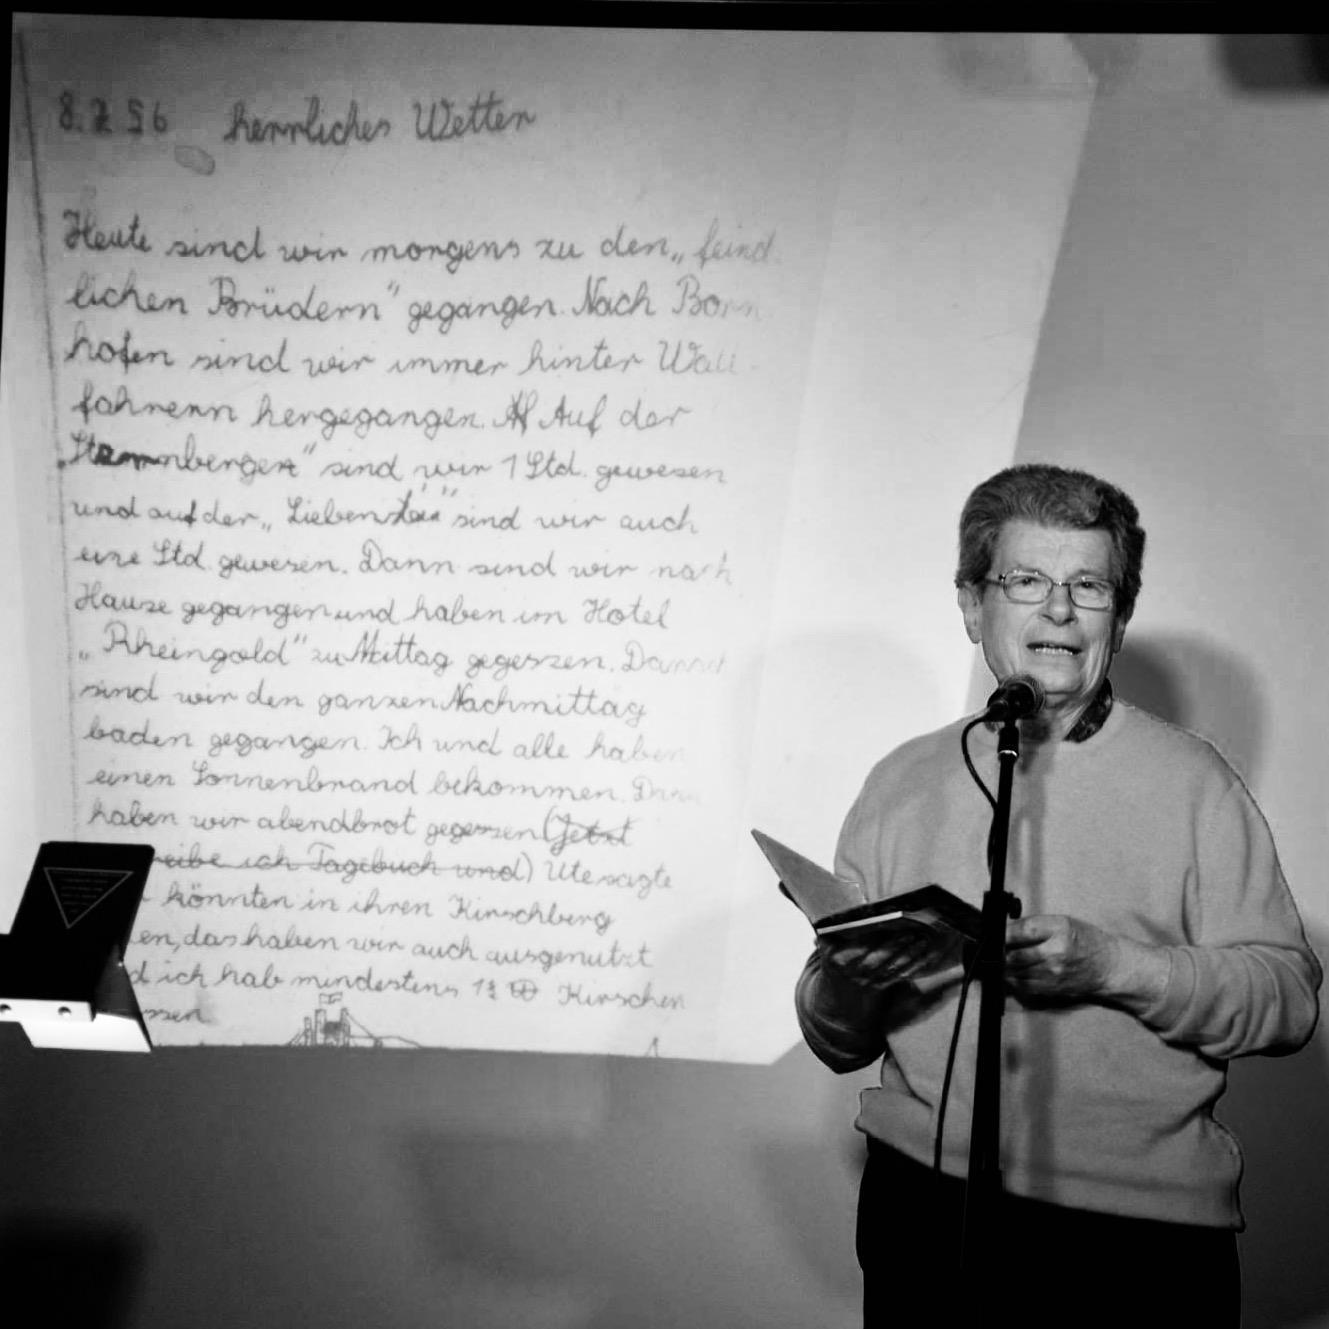 8.7.56 herrliches Wetter
Heute sind wir morgens zu den „feind
lichen Brüdern" gegangen. Nach Born
hofen sind wir immer hinter Wall
fahrern hergegangen. Auf der
bergen" sind wir 1 Std. gewesen
und auf der „Liebenstein" sind wir auch
eine Std. gewesen. Dann sind wir nach
Hause gegangen und haben im Hotel
„Rheingold" zu Mittag gegessen. Dann
sind wir den ganzen Nachmittag
baden gegangen. Ich und alle haben
einen Sonnenbrand bekommen. Dann
haben wir abendbrot gegessen (Jetzt
reibe ich Tagebuch und) Ute sagte
könnten in ihren Kirschberg
en, das haben wir auch ausgenutzt
d ich hab mindestens Kirschen
ssen